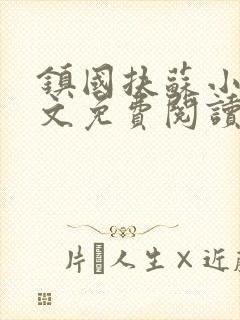 鎮國扶蘇小
文免費閱讀
片 人生×近